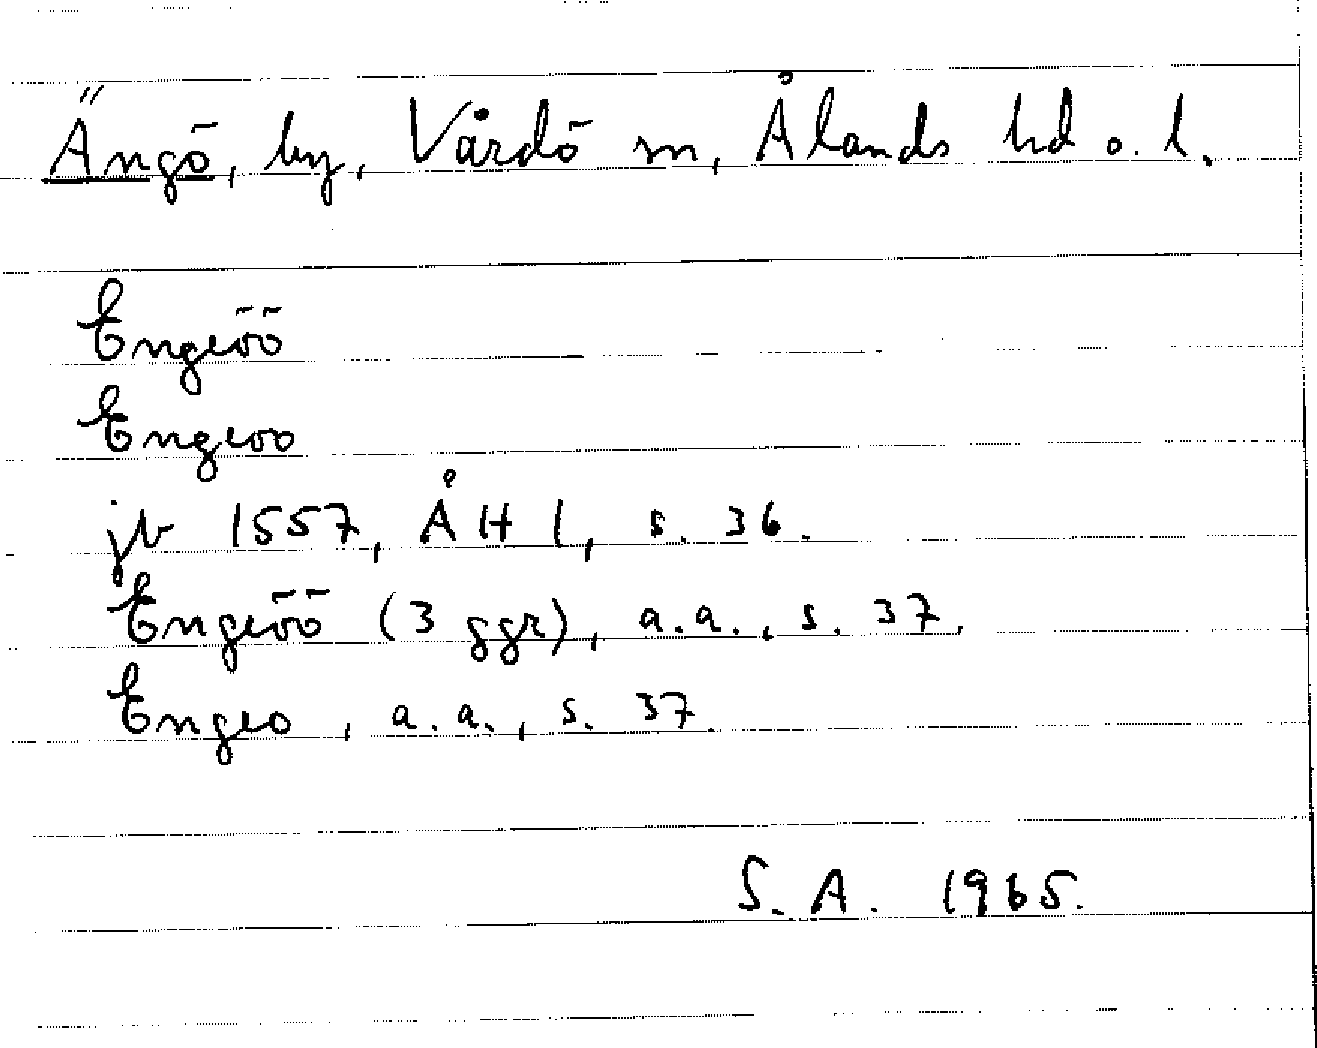 Ängö, by, Vårdö sn, Ålands hd o. l.
Engeöö
Engeoo
jb 1557, ÅH I, s. 36.
Engeöö (3 ggr), a.a., s. 37.
Engeo, a.a., s. 37
S. A. 1965.